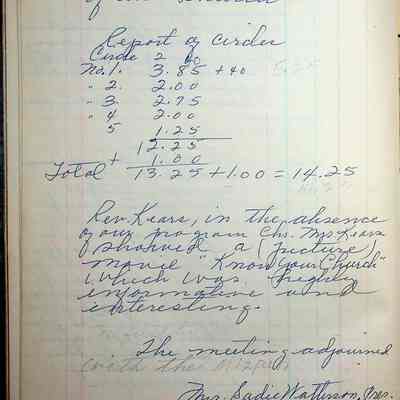 of our
Report of circles
Circle 2 60
No. 1. 3.85 + 40 5.25
" 2. 2.00
" 3. 2.75
" 4. 2.00
5 1.25
12.25
+ 1.00
Total 13.25 + 1.00 = 14.25
Rev. Kears, in the absence
of our program Chr. Mrs Kears
showed a (picture)
movie "Know Your Church"
which was highly
informative and
interesting.
The meeting adjourned
with the Mizpah
Mrs. Sadie Watterson, Pres.